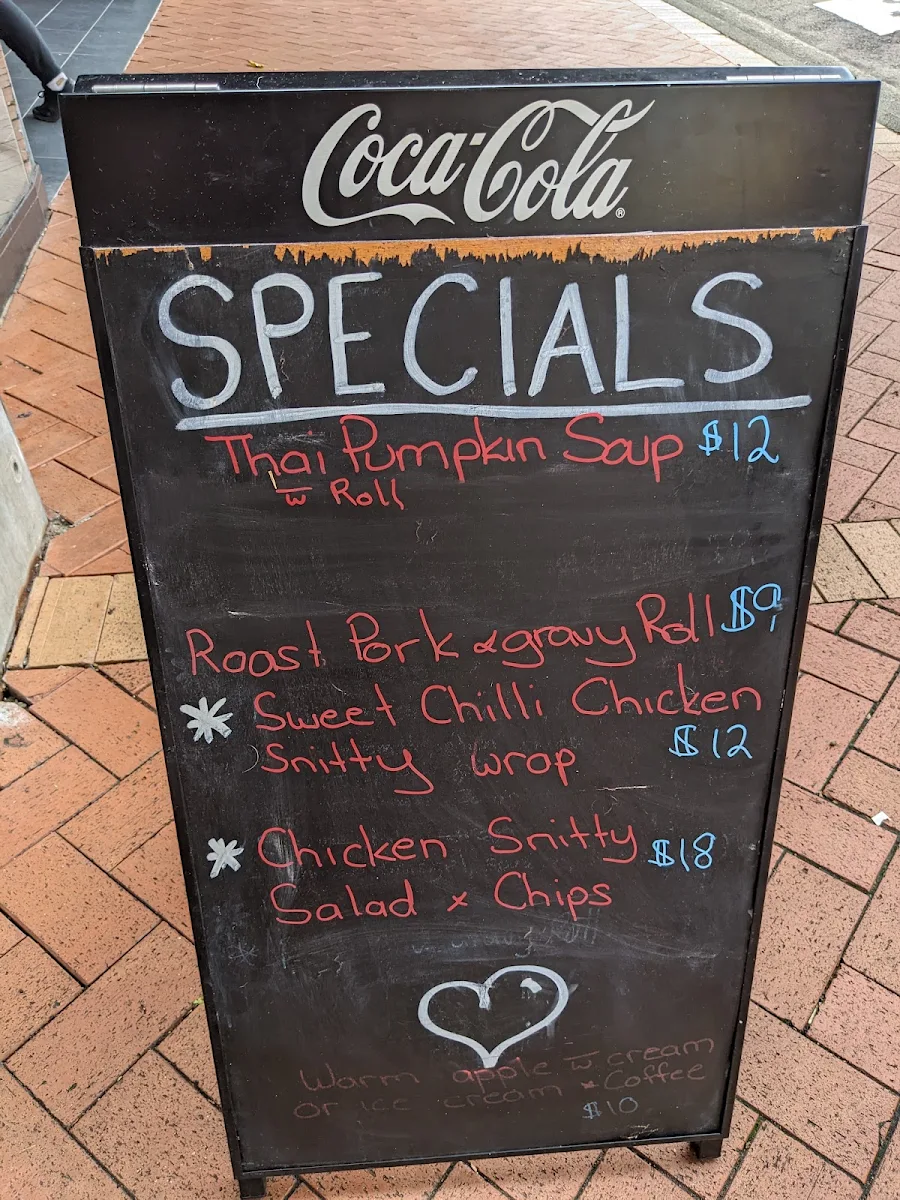 Coca-Cola®
SPECIALS
Thai Pumpkin Soup $12
w̅ Roll
Roast Pork & gravy Roll $9
* Sweet Chilli Chicken
Snitty wrap $12
* Chicken Snitty $18
Salad x Chips
Warm apple w̅ cream
or ice cream x Coffee
$10